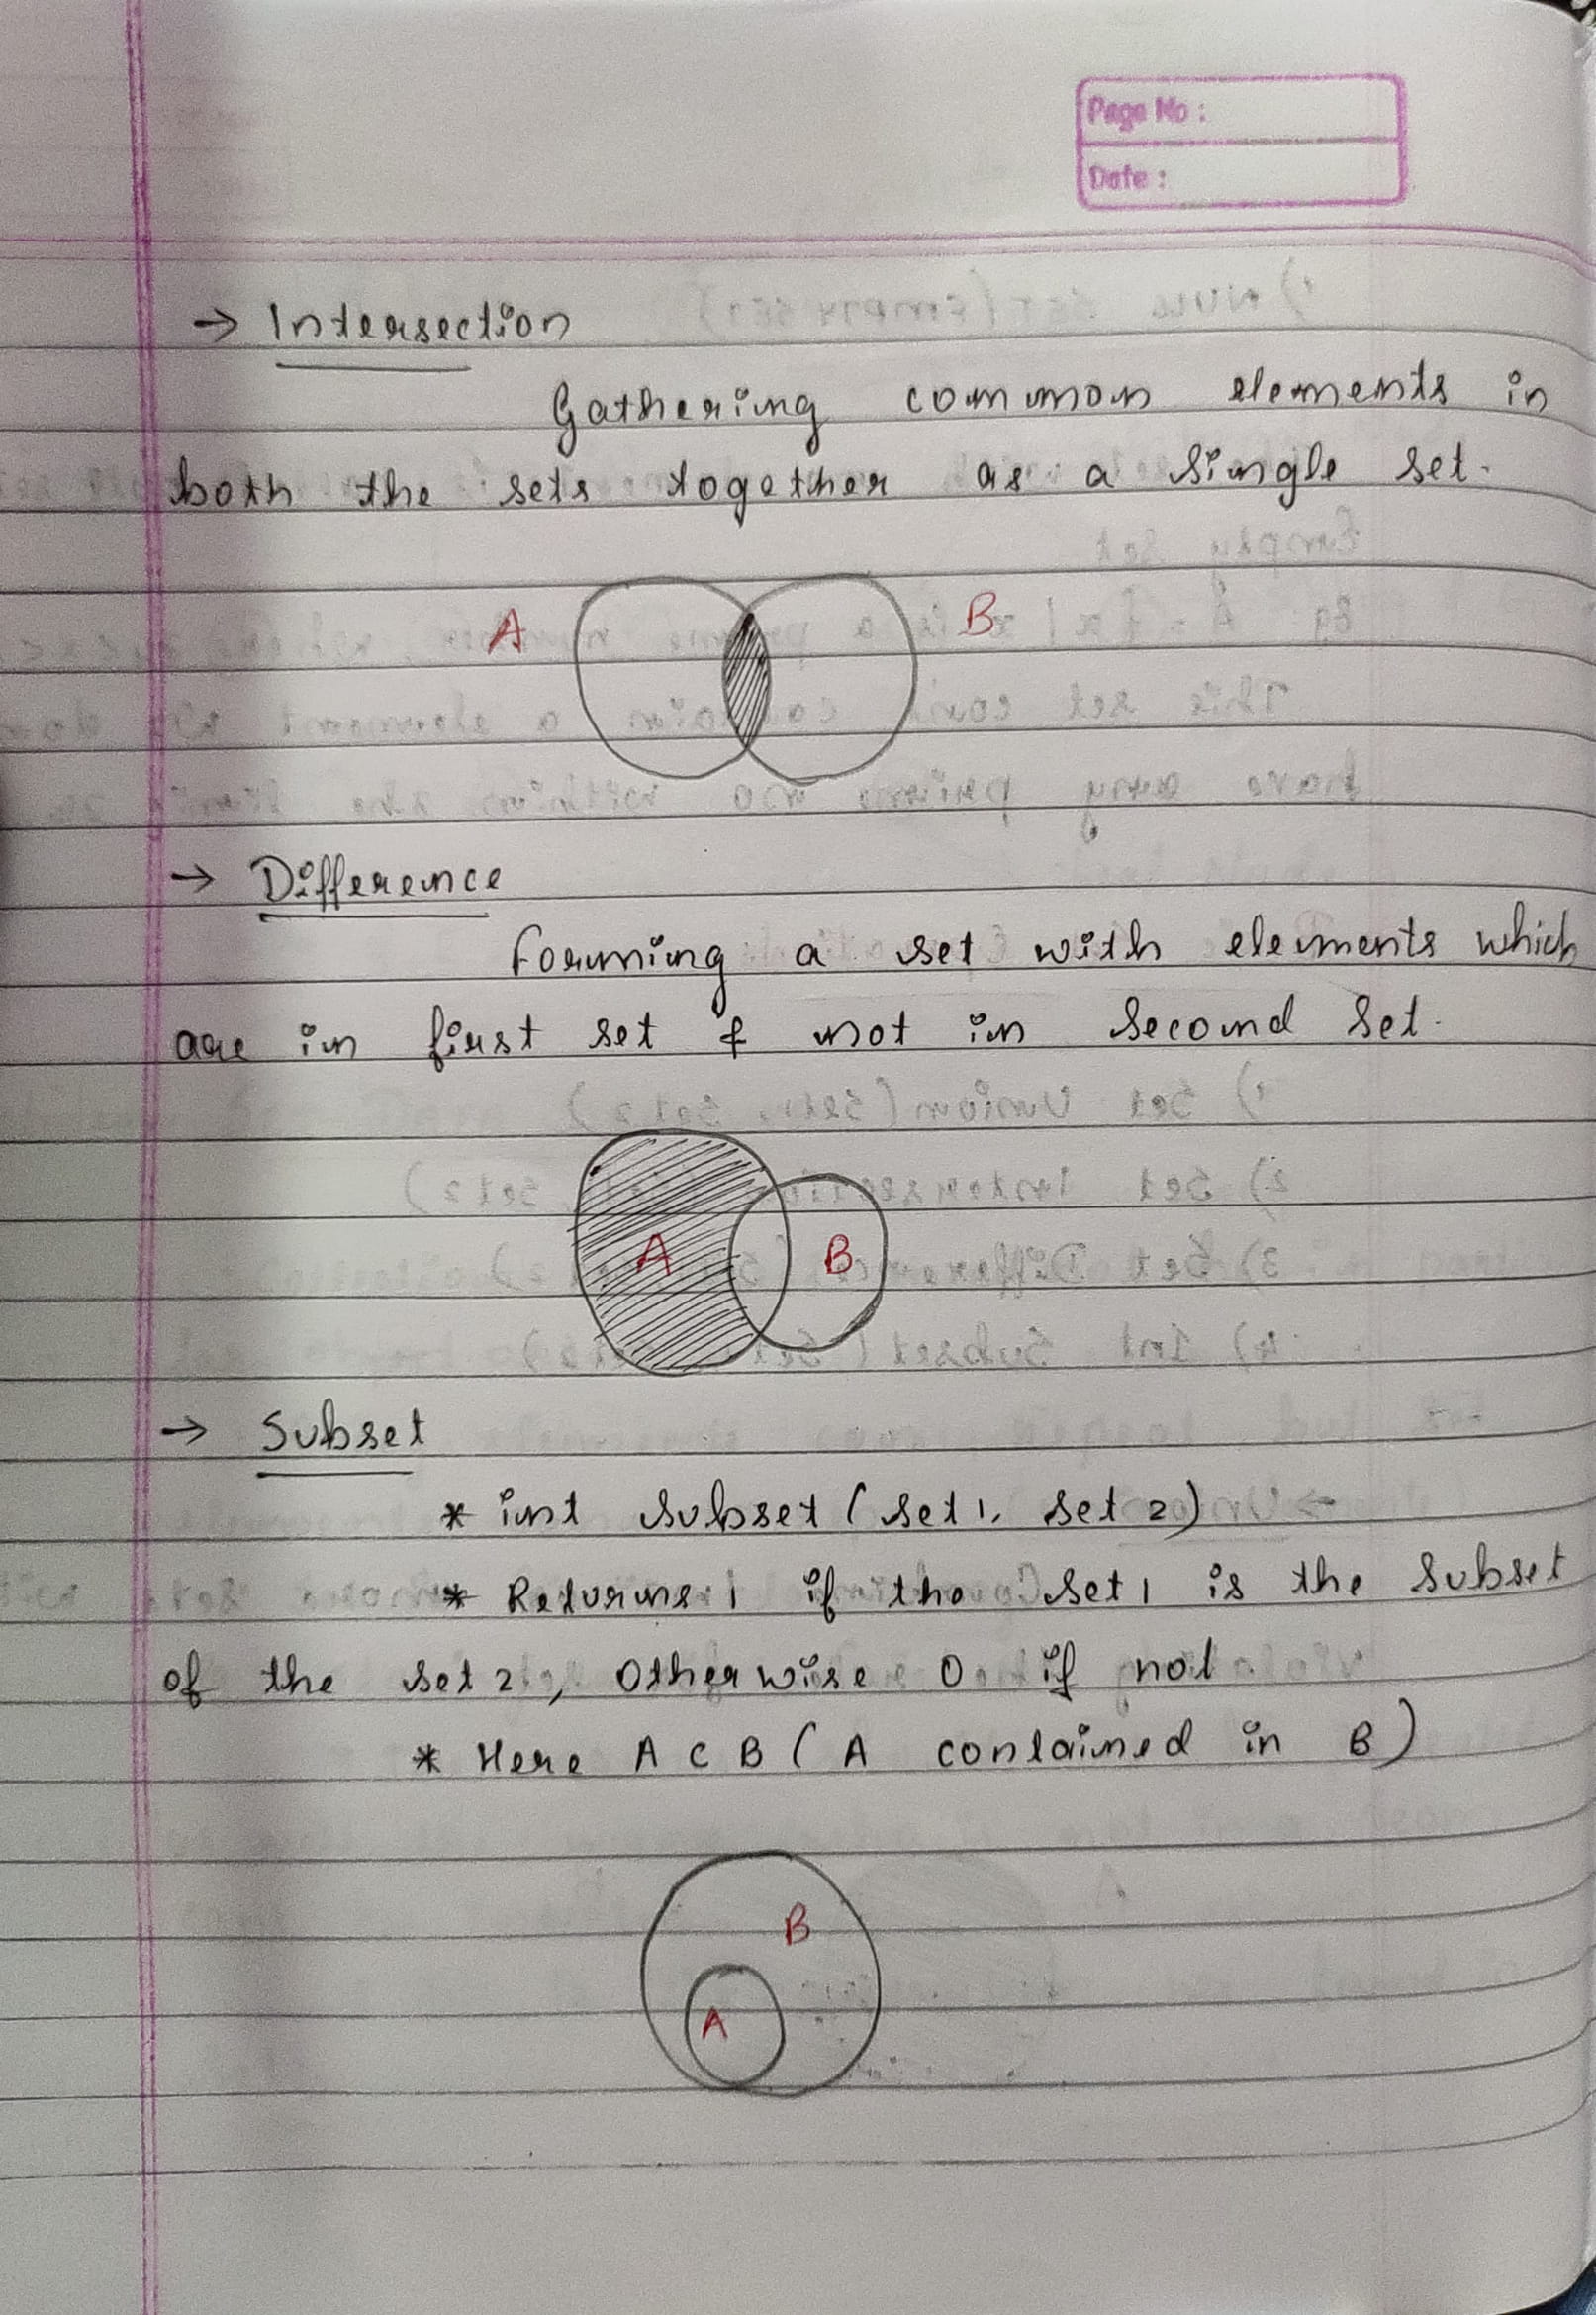 Page No :
Date :
→ Intersection
Gathering common elements in
both the sets together as a single set.
A B
→ Difference
Forming a set with elements which
are in first set & not in second set.
A B
→ Subset
* int subset (set 1, set 2)
* Returns 1 if the set 1 is the subset
of the set 2, otherwise 0 if not
* Here A ⊂ B ( A contained in B )
B
A